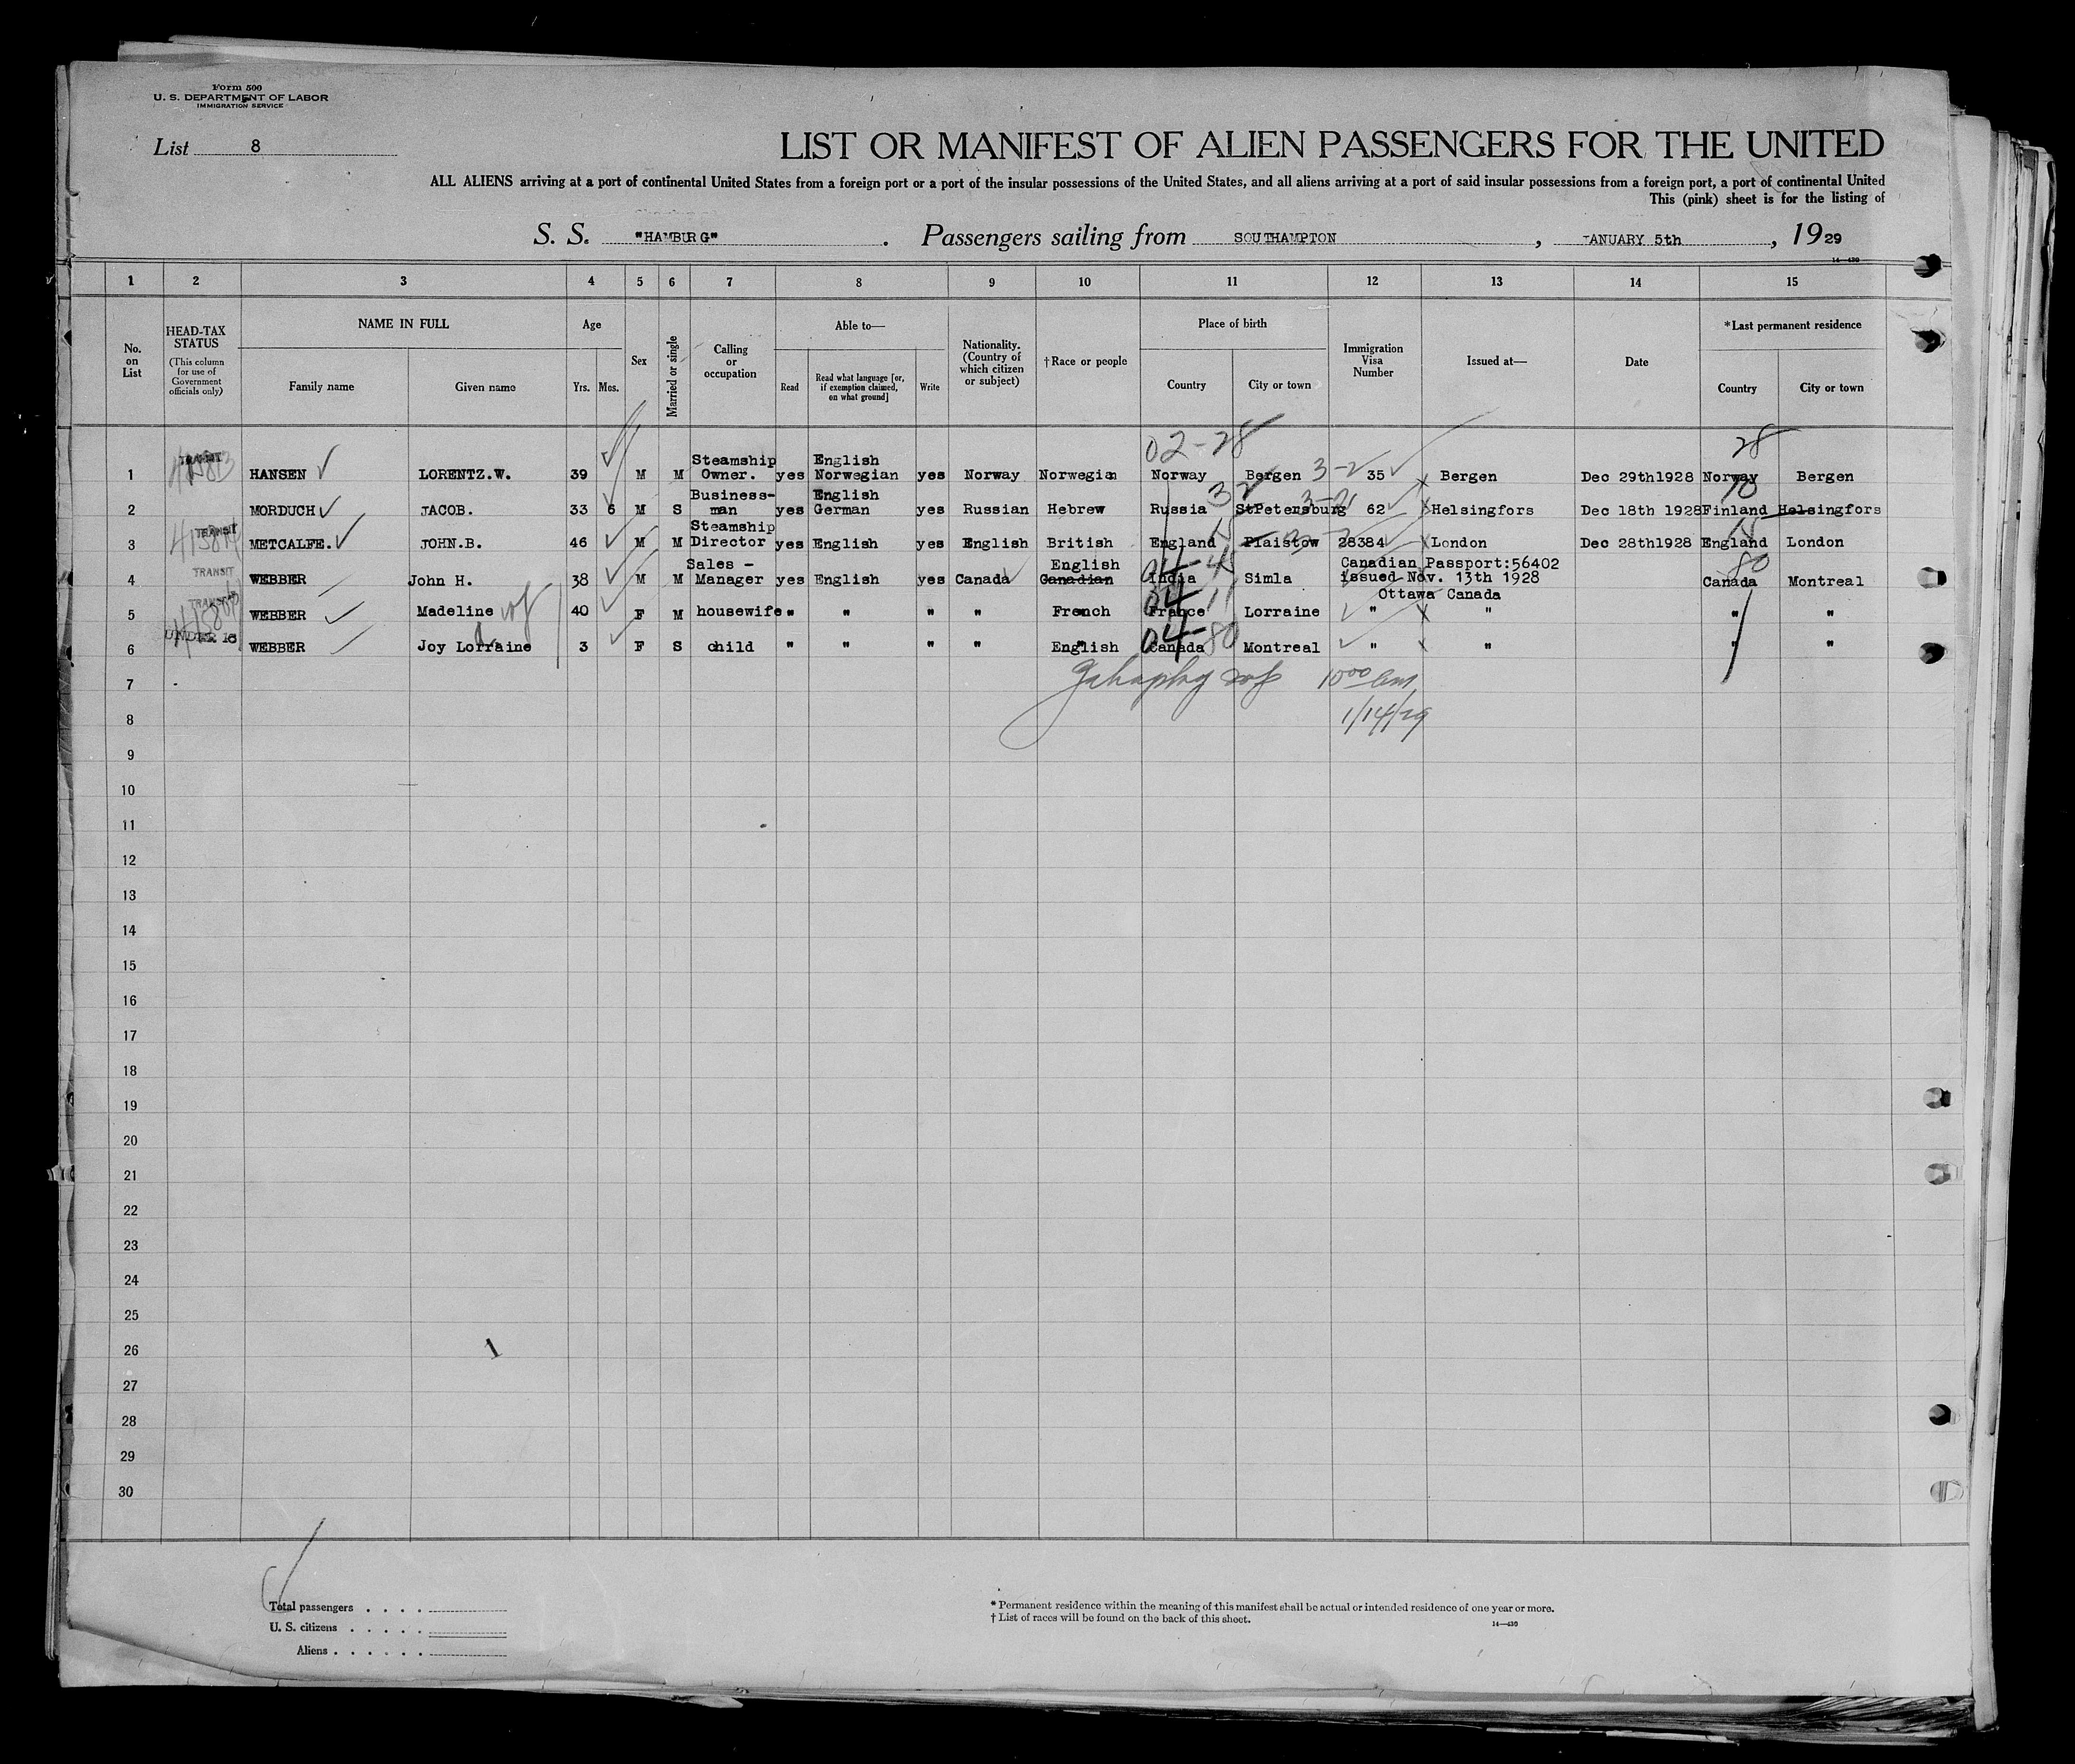 Form 500
U. S. DEPARTMENT OF LABOR
IMMIGRATION SERVICE
List 8
LIST OR MANIFEST OF ALIEN PASSENGERS FOR THE UNITED
ALL ALIENS arriving at a port of continental United States from a foreign port or a port of the insular possessions of the United States, and all aliens arriving at a port of said insular possessions from a foreign port, a port of continental United
This (pink) sheet is for the listing of
S. S. "HAMBURG" . Passengers sailing from SOUTHAMPTON , JANUARY 5th , 1929
14—430
1 2 3 4 5 6 7 8 9 10 11 12 13 14 15
No. on List
HEAD-TAX STATUS (This column for use of Government officials only)
NAME IN FULL
Family name Given name
Age
Yrs. Mos.
Sex
Married or single
Calling or occupation
Able to—
Read
Read what language [or, if exemption claimed, on what ground]
Write
Nationality. (Country of which citizen or subject)
†Race or people
Place of birth
Country City or town
Immigration Visa Number
Issued at—
Date
*Last permanent residence
Country City or town
02-28 28
1 TRANSIT HANSEN LORENTZ.W. 39 M M Steamship Owner. yes English Norwegian yes Norway Norwegian Norway Bergen 3-2 35 Bergen Dec 29th1928 Norway Bergen
2 MORDUCH JACOB. 33 6 M S Business-man yes English German yes Russian Hebrew Russia StPetersburg 62 Helsingfors Dec 18th 1928 Finland Helsingfors
3 TRANSIT METCALFE. JOHN.B. 46 M M Steamship Director yes English yes English British England Plaistow 28384 London Dec 28th1928 England London
4 TRANSIT WEBBER John H. 38 M M Sales - Manager yes English yes Canada English Canadian India Simla Canadian Passport:56402 issued Nov. 13th 1928 Ottawa Canada Canada Montreal
80
5 TRANSIT WEBBER Madeline 40 F M housewife " " " " French France Lorraine " " " "
6 UNDER 16 WEBBER Joy Lorraine 3 F S child " " " " English 04-80 Canada Montreal " " " "
7
1/14/29
8
9
10
11
12
13
14
15
16
17
18
19
20
21
22
23
24
25
26
27
28
29
30
Total passengers
U. S. citizens
Aliens
* Permanent residence within the meaning of this manifest shall be actual or intended residence of one year or more.
† List of races will be found on the back of this sheet.
14—430